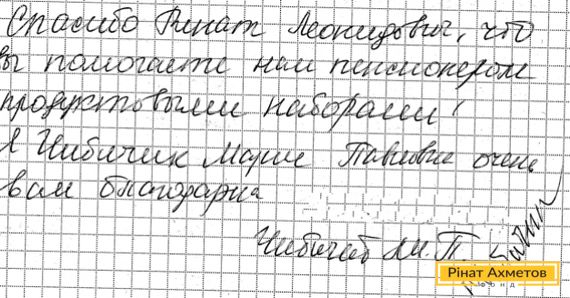 Спасибо Ринат Леонидович, что
вы помогаете нам пенсионерам
продуктовыми наборами!
Я Чибичик Мария Павловна очень
вам благодарна
М.П.
Рінат Ахметов
Фонд